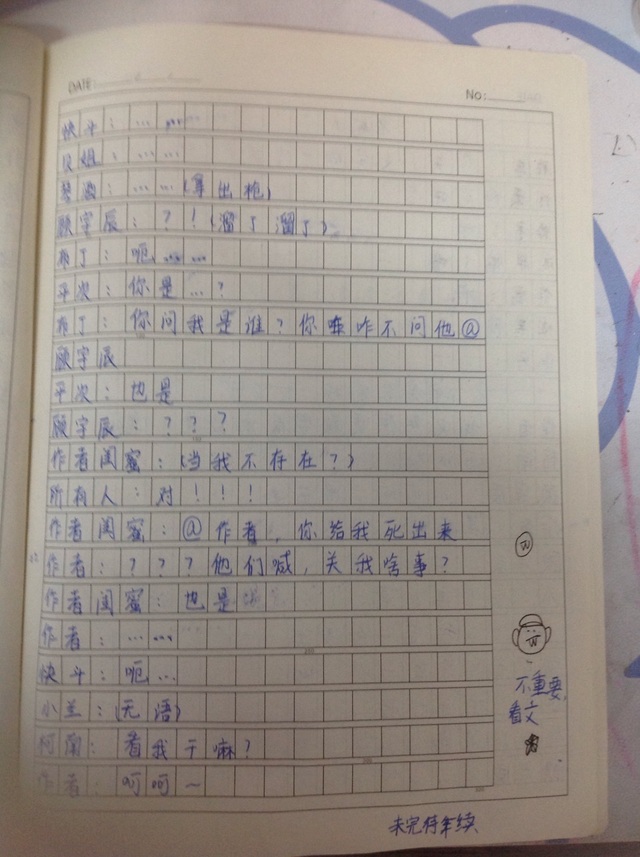 DATE:
No:
快斗：… …
贝姐：… …
琴酒：… …(拿出枪)
顾宇辰：？！(溜了溜了)
布丁：呃… …
平次：你是…？
布丁：你问我是谁？你咋不问他@
顾宇辰
平次：也是
顾宇辰：？？？
作者闺蜜：(当我不存在？)
所有人：对！！！
作者闺蜜：@作者，你给我死出来
作者：？？？他们喊，关我啥事？
作者闺蜜：也是
作者：… …
快斗：呃…
小兰：(无语)
柯南：看我干嘛？
作者：呵呵~
不重要，
看文
未完待续